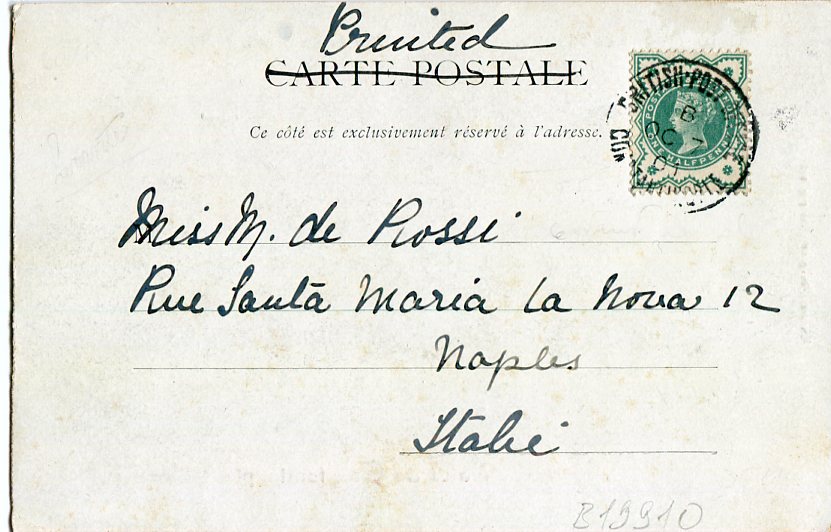 Printed
CARTE POSTALE
Ce côté est exclusivement réservé à l'adresse.
BRITISH POST
B
OC 7
01
POSTAGE
ONE HALFPENNY
Miss M. de Rossi
Rue Santa Maria la Nova 12
Naples
Italie
B19910